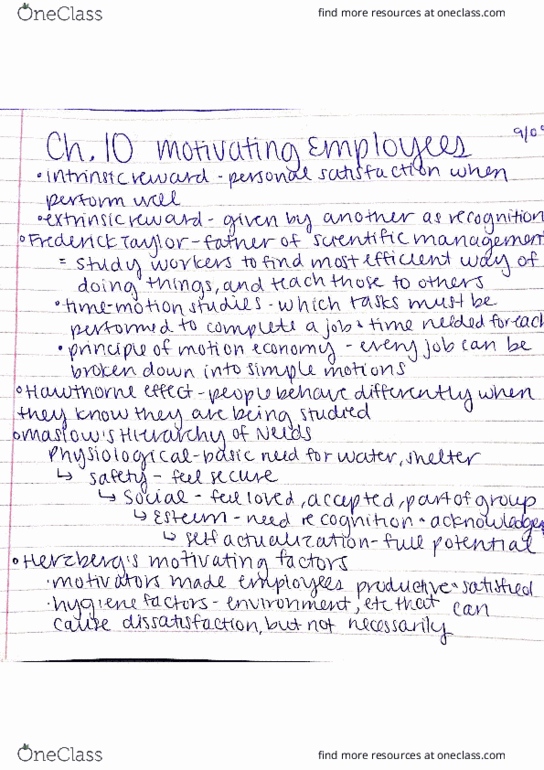 OneClass find more resources at oneclass.com
9/0
Ch. 10 motivating Employees
•intrinsic reward - personal satisfaction when
perform well
•extrinsic reward - given by another as recognition
•Frederick Taylor - father of scientific management
= study workers to find most efficient way of
doing things, and teach those to others
•time-motion studies - which tasks must be
performed to complete a job + time needed for each
•principle of motion economy - every job can be
broken down into simple motions
•Hawthorne effect - people behave differently when
they know they are being studied
•Maslow's Hierarchy of Needs
Physiological - basic need for water, shelter
↳ safety - feel secure
↳ Social - feel loved, accepted, part of group
↳ Esteem - need recognition + acknowledge
↳ self actualization - full potential
•Herzberg's motivating factors
•motivators made employees productive + satisfied
•hygiene factors - environment, etc that can
cause dissatisfaction, but not necessarily
OneClass find more resources at oneclass.com